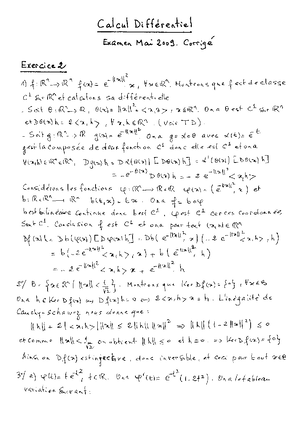 Calcul Différentiel
Examen Mai 2009. Corrigé
Exercice 2
1) f: ℝⁿ → ℝⁿ f(x) = e^{-||x||²} x, ∀x∈ℝⁿ. Montrons que f est de classe
C¹ sur ℝⁿ et calculons sa différentielle.
- Soit θ: ℝⁿ → ℝ, θ(x) = ||x||² = <x,x>, x∈ℝⁿ. On a θ est C¹ sur ℝⁿ
et Dθ(x)h = 2<x,h>, ∀x,h∈ℝⁿ. (voir TD).
- Soit g: ℝⁿ → ℝ g(x) = e^{-||x||²} On a g = α∘θ avec α(t) = e^{-t}
g est la composée de deux fonctions C¹ donc elle est C¹ et on a
∀(x,h)∈ℝⁿ×ℝⁿ, Dg(x)h = Dα(θ(x))[Dθ(x)h] = α'(θ(x))[Dθ(x)h]
= -e^{-θ(x)} Dθ(x)h = -2 e^{-||x||²} <x,h>
Considérons les fonctions φ: ℝⁿ → ℝ×ℝⁿ φ(x) = (e^{-||x||²}, x) et
b: ℝ×ℝⁿ → ℝⁿ b(t,x) = t.x. On a f = b∘φ
b est bilinéaire continue donc b est C¹, φ est C¹ car ses coordonnées
sont C¹. Conclusion f est C¹ et on a pour tout (x,h)∈ℝⁿ
Df(x)h = Db(φ(x))[Dφ(x)h] = Db(e^{-||x||²}, x)(-2 e^{-||x||²}<x,h>, h)
= b(-2e^{-||x||²}<x,h>, x) + b(e^{-||x||²}, h)
= -2 e^{-||x||²} <x,h> x + e^{-||x||²} h
2) B = {x∈ℝⁿ / ||x|| < 1/√2}. Montrons que Ker Df(x) = {0}, ∀x∈B
On a h∈Ker Df(x) ⟺ Df(x)h = 0 ⟺ 2<x,h>x = h. L'inégalité de
Cauchy-Schwarz nous donne que :
||h|| = 2|<x,h>| ||x|| ≤ 2||h|| ||x||² ⟹ ||h||(1-2||x||²) ≤ 0
et comme ||x|| < 1/√2 on obtient ||h|| = 0 et h = 0 ⟹ Ker Df(x) = {0}
Ainsi on Df(x) est injective, donc inversible, et ceci pour tout x∈B
3) a) φ(t) = t e^{-t²}, t∈ℝ. On a φ'(t) = e^{-t²}(1-2t²). On a le tableau
variation suivant :